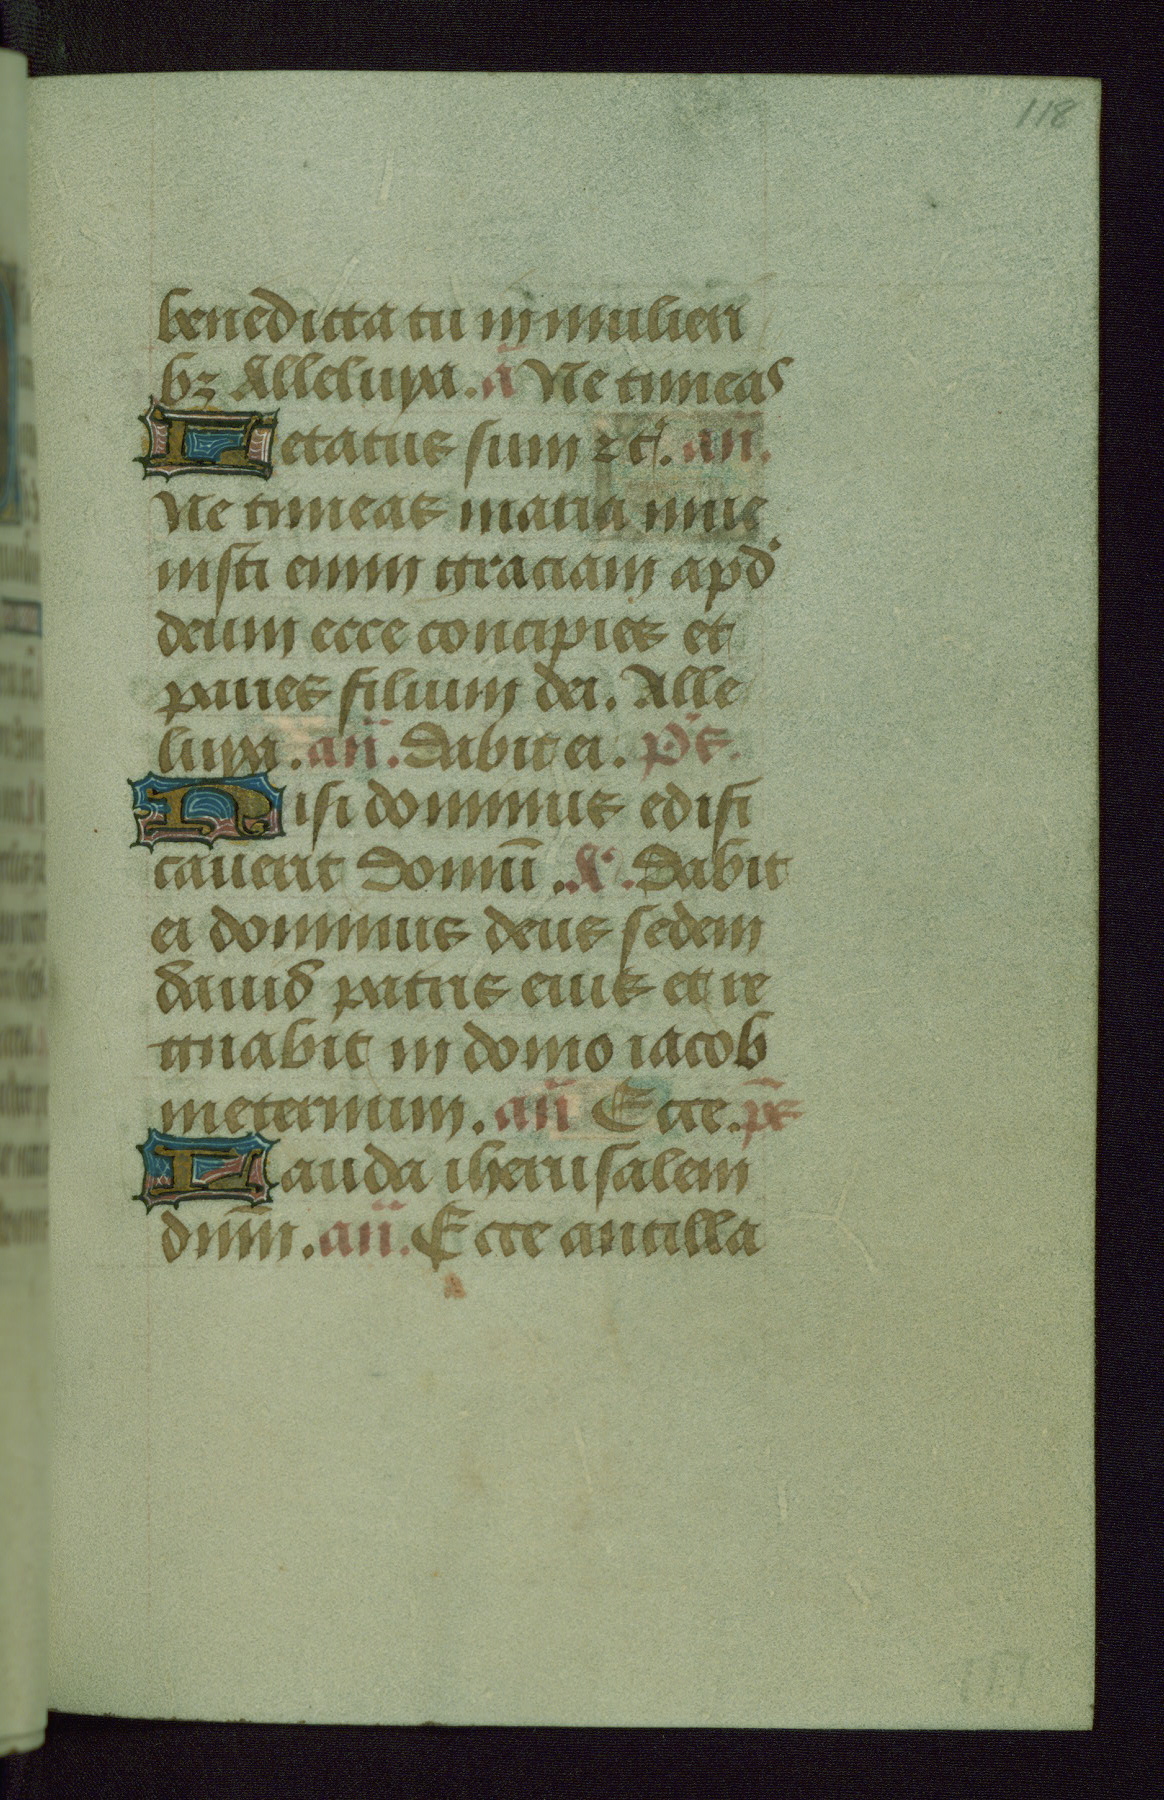 118
benedicta tu in mulieri
bꝫ Alleluya. ā Ne timeas
Letatus sum ⁊c̃. an̄.
Ne timeas maria inue
nisti enim graciam apd̾
deum ecce concipies et
paries filium dei. Alle
luya. an̄. Dabit ei. p̄s.
Nisi dominus edifi
cauerit Domū .A. Dabit
ei dominus deus sedem
dauid patris eius et re
gnabit in domo iacob
ineternum. an̄ Ecce. p̄s
Lauda iherusalem
dnm̄. an̄. Ecce ancilla
117